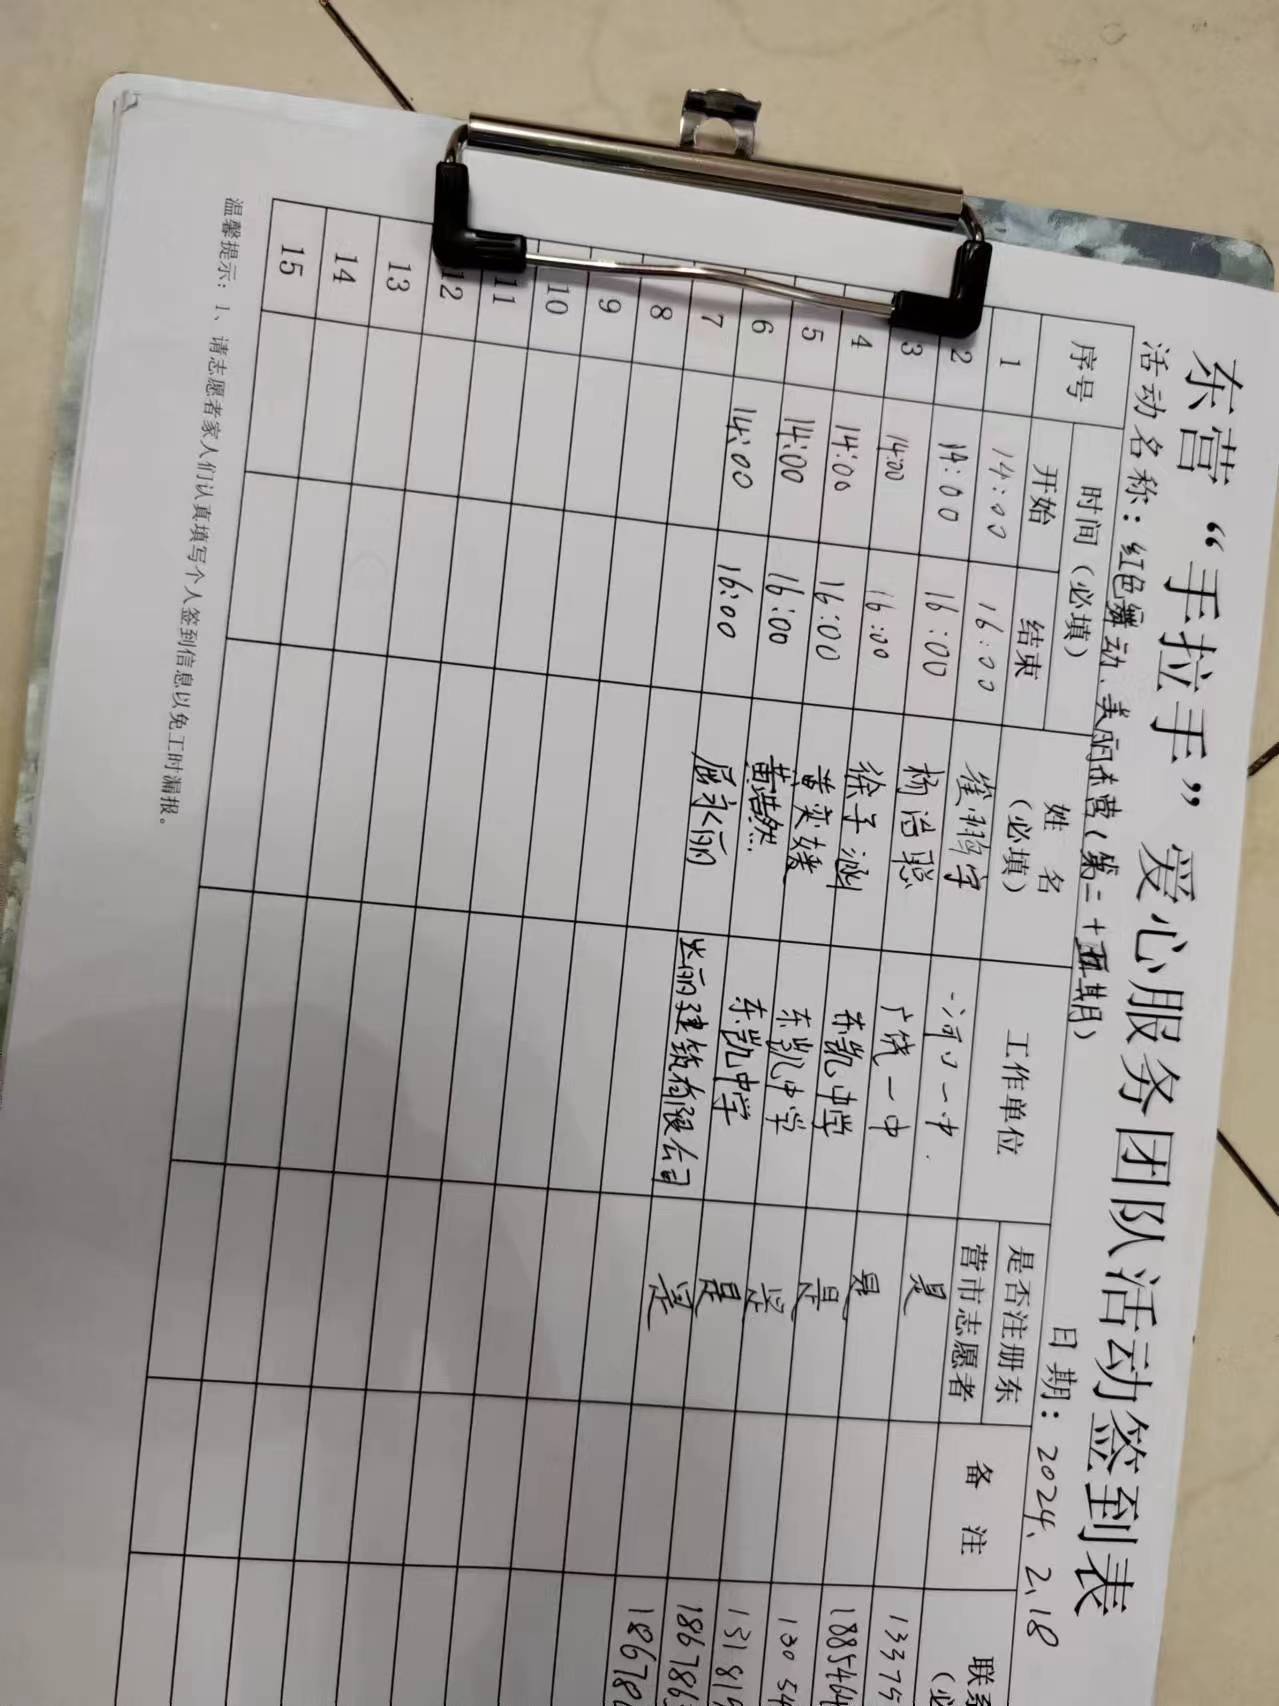 东营“手拉手”爱心服务团队活动签到表
活动名称：红色舞动、美丽东营（第二十五期） 日期：2024、2、18
序号 时间（必填） 姓 名（必填） 工作单位 是否注册东营市志愿者 备 注 联系
开始 结束
1 14:00 16:00 崔鹏宇 河口一中 是 13375
2 14:00 16:00 杨浩聪 广饶一中 是 1885464
3 14:00 16:00 徐子涵 东凯中学 是 130 54
4 14:00 16:00 黄奕媛 东凯中学 是 131 819
5 14:00 16:00 黄浩然 东凯中学 是 186786
6 14:00 16:00 屈永丽 建筑有限公司 是 186786
7
8
9
10
11
12
13
14
15
温馨提示：1、请志愿者家人们认真填写个人签到信息以免工时漏报。